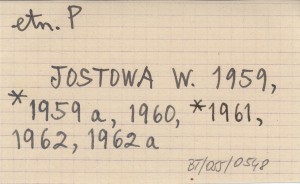 etn. P
JOSTOWA W. 1959,
*1959 a, 1960, *1961,
1962, 1962 a
BT/055/0548